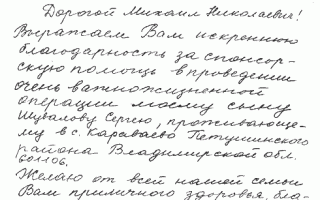 Дорогой Михаил Николаевич!
Выражаем Вам искреннюю
благодарность за спонсор-
скую помощь в проведении
очень важножизненной
операции моему сыну
Шувалову Сергею, проживающе-
му в с. Караваево Петушинского
района Владимирской обл.
601106.
Желаю от всей нашей семьи
Вам приличного здоровья, бла-